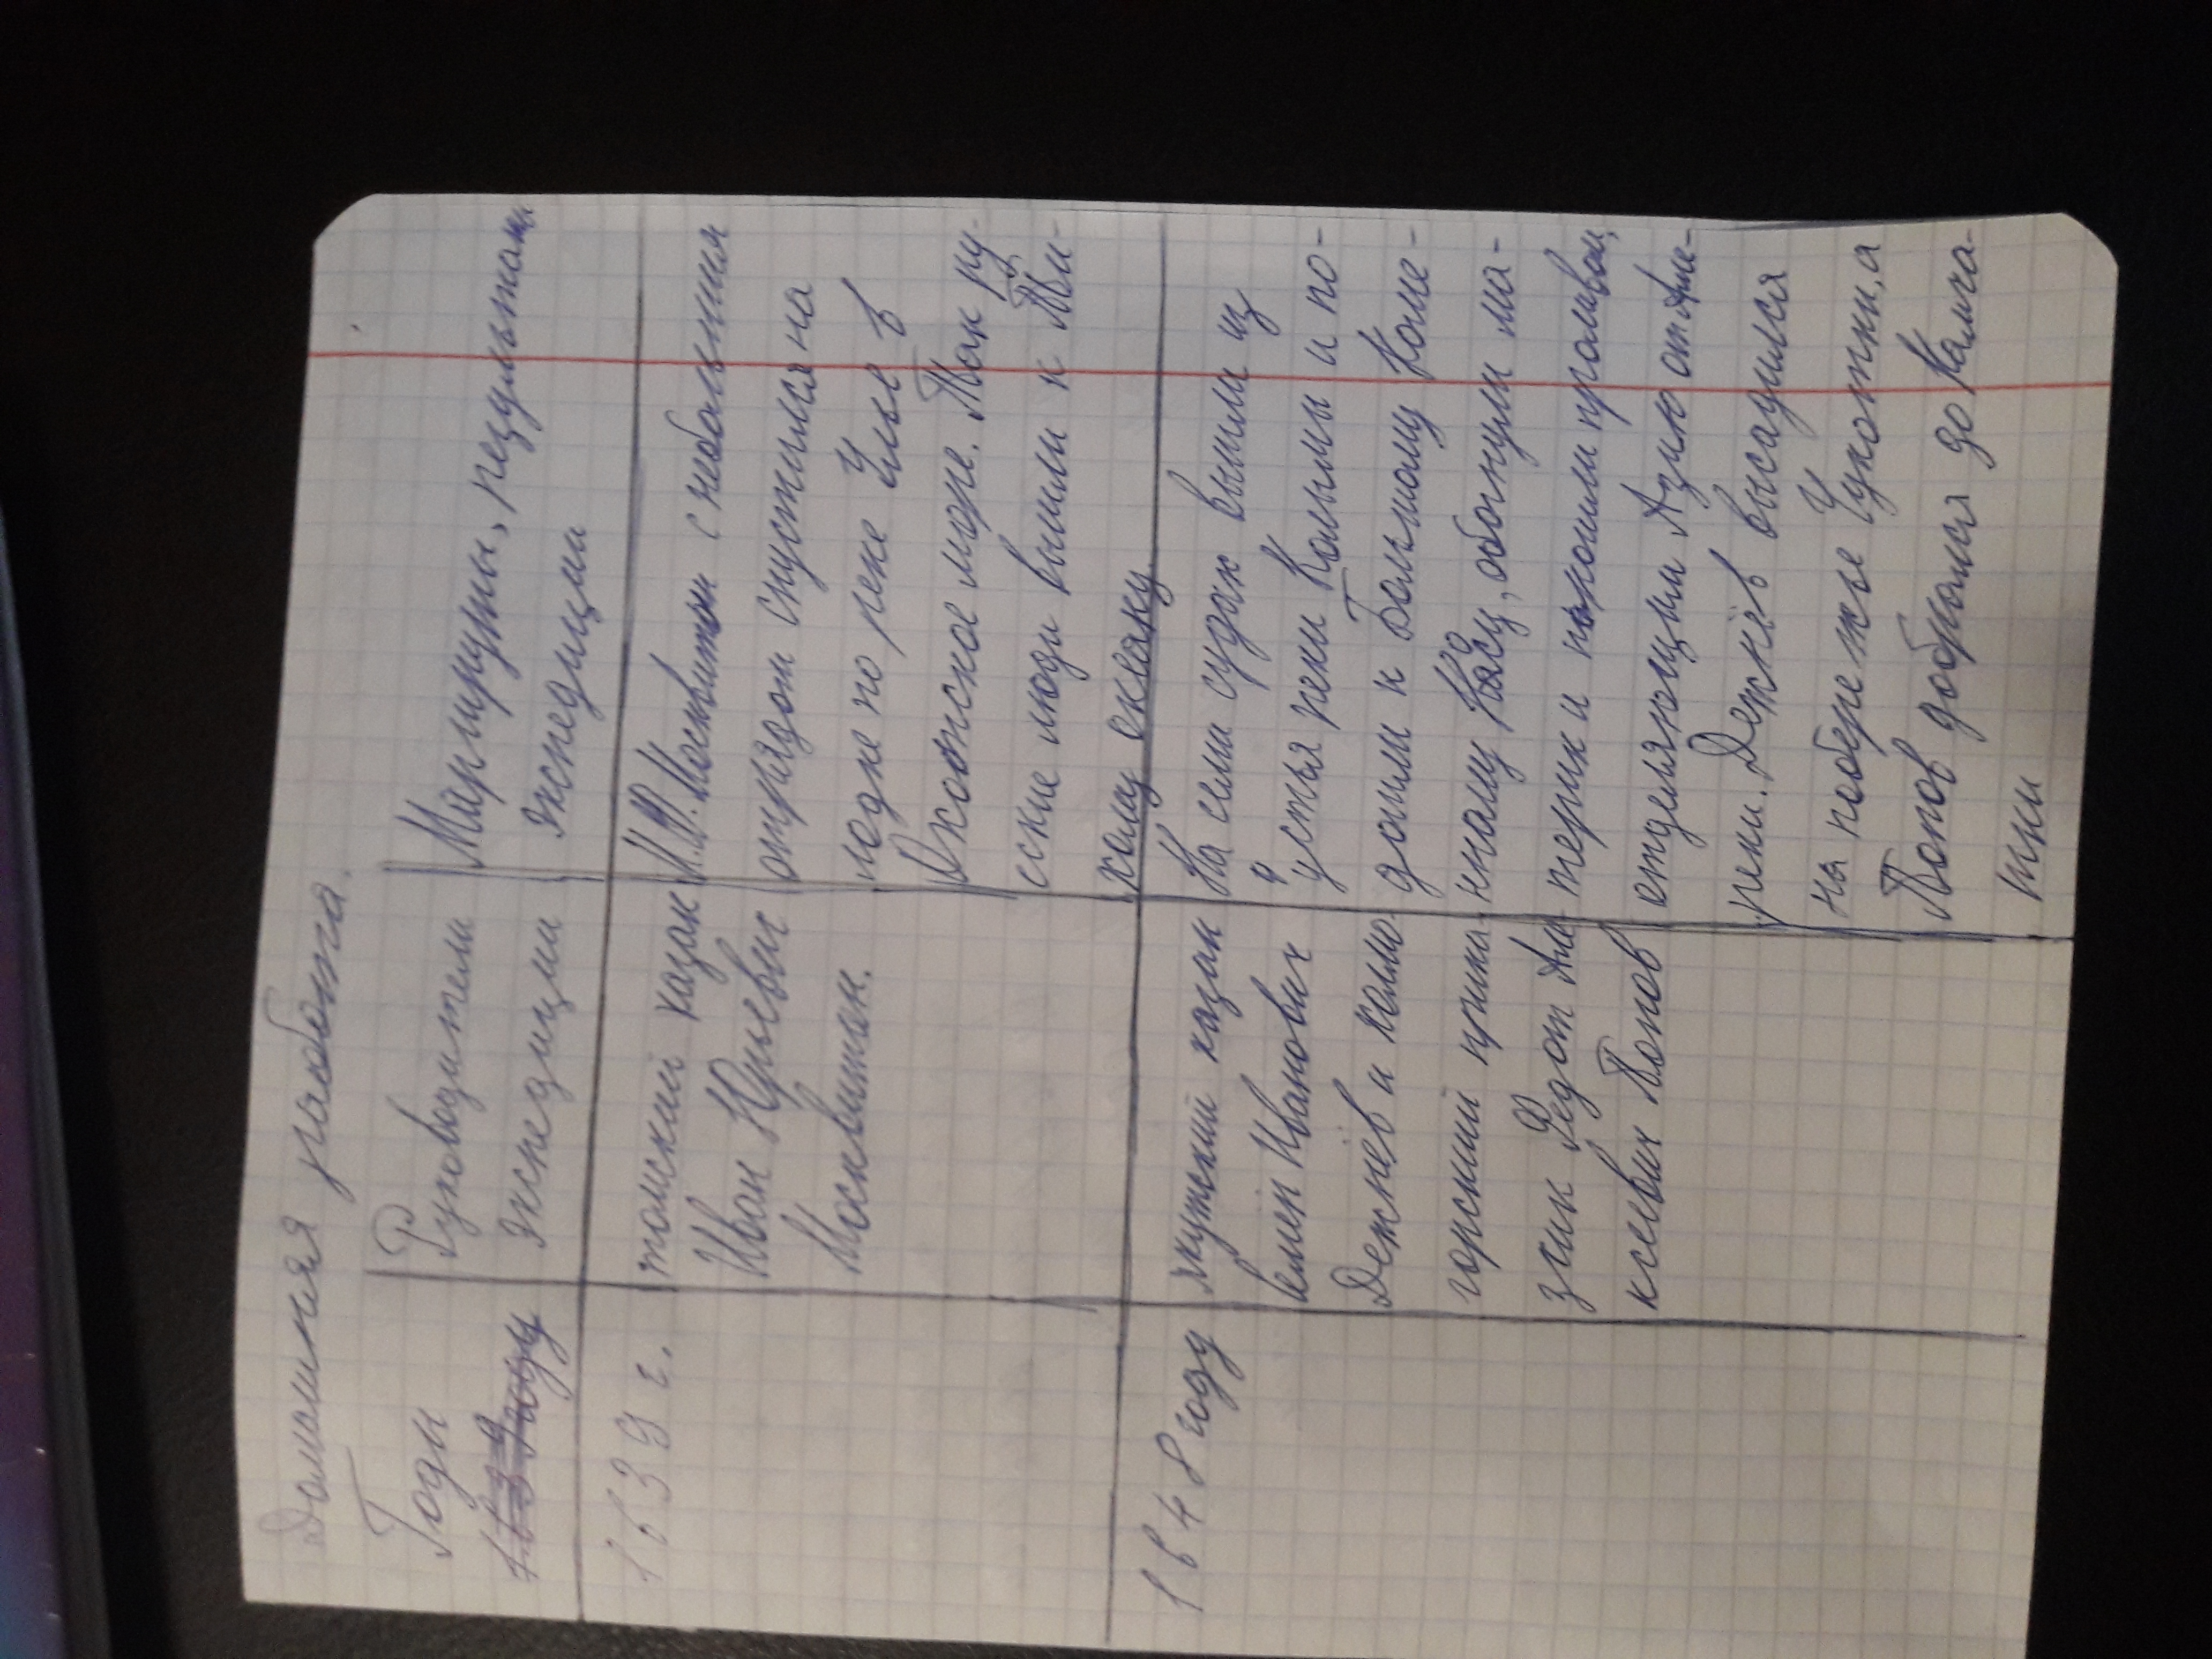 Домашняя работа.
Годы
1639 году
Руководители
экспедиции
Маршруты, результаты
экспедиции
1639 г.
томский казак
Иван Юрьевич
Москвитин.
И.Ю. Москвитин с небольшим
отрядом спустился на
лодке по реке Улье в
Охотское море. Так ру-
сские люди вышли к Ти-
хому океану.
1648 году
якутский казак
Семён Иванович
Дежнёв и холмо-
горский прика-
зчик Федот Але-
ксеевич Попов
На семи судах вышли из
устья реки Колымы и по-
дошли к Большому Каме-
нному Носу, обогнули ма-
терик и прошли проливом,
отделяющим Азию от Аме-
реки. Дежнёв высадился
на побережье Чукотки, а
Попов добрался до Камча-
тки